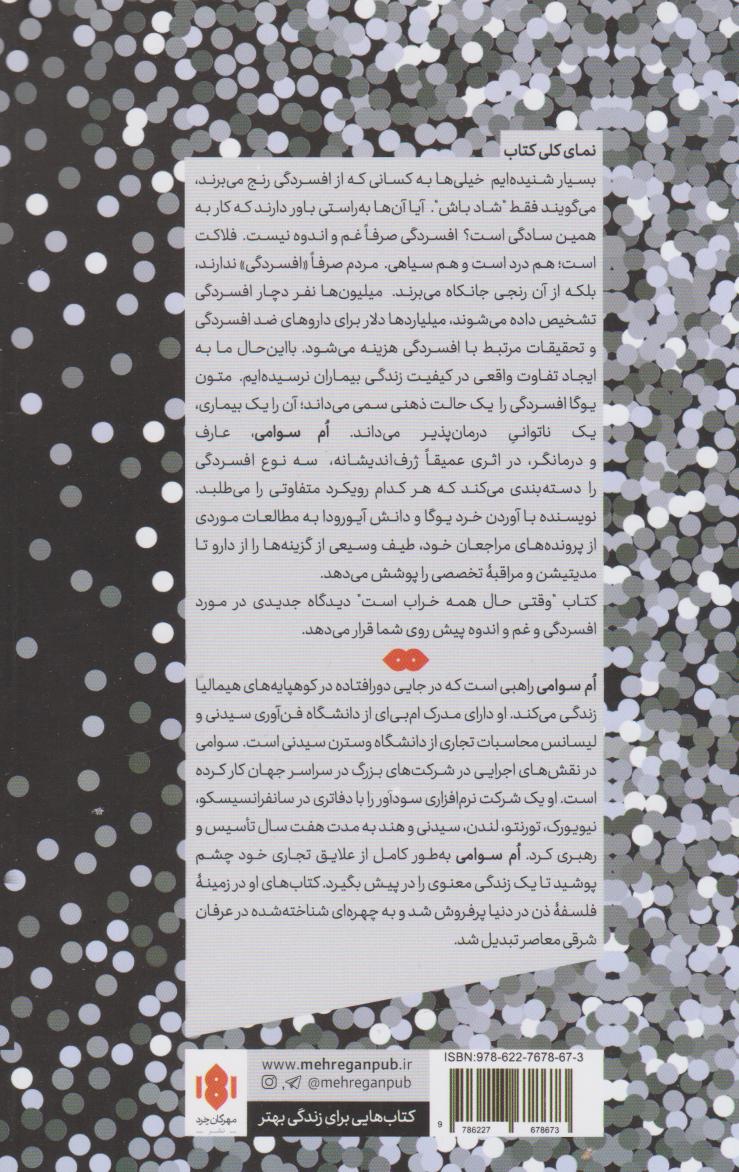 نمای کلی کتاب
بسیار شنیده‌ایم خیلی‌ها به کسانی که از افسردگی رنج می‌برند،
می‌گویند فقط "شاد باش". آیا آن‌ها به‌راستی باور دارند که کار به
همین سادگی است؟ افسردگی صرفاً غم و اندوه نیست. فلاکت
است؛ هم درد است و هم سیاهی. مردم صرفاً «افسردگی» ندارند،
بلکه از آن رنجی جانکاه می‌برند. میلیون‌ها نفر دچار افسردگی
تشخیص داده می‌شوند، میلیاردها دلار برای داروهای ضد افسردگی
و تحقیقات مرتبط با افسردگی هزینه می‌شود. بااین‌حال ما به
ایجاد تفاوت واقعی در کیفیت زندگی بیماران نرسیده‌ایم. متون
یوگا افسردگی را یک حالت ذهنی سمی می‌داند؛ آن را یک بیماری،
یک ناتوانیِ درمان‌پذیر می‌داند. اُم سوامی، عارف
و درمانگر، در اثری عمیقاً ژرف‌اندیشانه، سه نوع افسردگی
را دسته‌بندی می‌کند که هر کدام رویکرد متفاوتی را می‌طلبد.
نویسنده با آوردن خرد یوگا و دانش آیورودا به مطالعات موردی
از پرونده‌های مراجعان خود، طیف وسیعی از گزینه‌ها را از دارو تا
مدیتیشن و مراقبهٔ تخصصی را پوشش می‌دهد.
کتاب "وقتی حال همه خراب است" دیدگاه جدیدی در مورد
افسردگی و غم و اندوه پیش روی شما قرار می‌دهد.
اُم سوامی راهبی است که در جایی دورافتاده در کوهپایه‌های هیمالیا
زندگی می‌کند. او دارای مدرک ام‌بی‌ای از دانشگاه فن‌آوری سیدنی و
لیسانس محاسبات تجاری از دانشگاه وسترن سیدنی است. سوامی
در نقش‌های اجرایی در شرکت‌های بزرگ در سراسر جهان کار کرده
است. او یک شرکت نرم‌افزاری سودآور را با دفاتری در سانفرانسیسکو،
نیویورک، تورنتو، لندن، سیدنی و هند به مدت هفت سال تأسیس و
رهبری کرد. اُم سوامی به‌طور کامل از علایق تجاری خود چشم
پوشید تا یک زندگی معنوی را در پیش بگیرد. کتاب‌های او در زمینهٔ
فلسفهٔ ذن در دنیا پرفروش شد و به چهره‌ای شناخته‌شده در عرفان
شرقی معاصر تبدیل شد.
ISBN:978-622-7678-67-3
9 786227 678673
www.mehreganpub.ir
@mehreganpub
کتاب‌هایی برای زندگی بهتر
مهرگان خرد
نشر